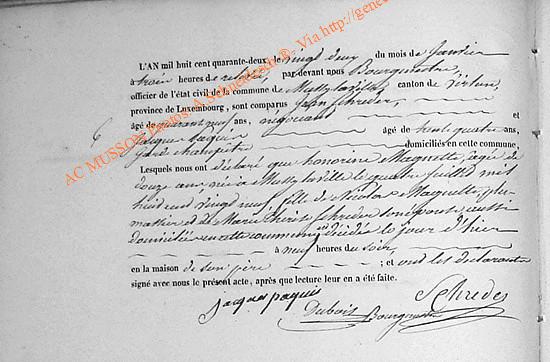 L'AN mil huit cent quarante-deux, le vingt deux du mois de Janvier
à trois heures de relevée, par-devant nous Bourgmestre
officier de l'état civil de la commune de Mussy la ville, canton de Virton,
province de Luxembourg, sont comparus Jean Schreder,
âgé de quarante neuf ans, négociant et
Jacques Paquis âgé de trente quatre ans,
garde champêtre domiciliés en cette commune,
Lesquels nous ont déclaré que honorine Maquette, agée de
douze ans née à Mussy la ville le quatre juillet mil
huit cent vingt neuf, fille de Nicolas Maquette, plu-
massier et de Marie thérèse Schreder conjoints, aussi
domiciliés en cette commune, est décédée le jour d'hier
à neuf heures du soir,
en la maison de son père ; et ont les déclarants
signé avec nous le présent acte, après que lecture leur en a été faite.
jacques paquis
Schreder
Dubois Bourgmestre
AC MUSSON, Photos: A. Via http://gene